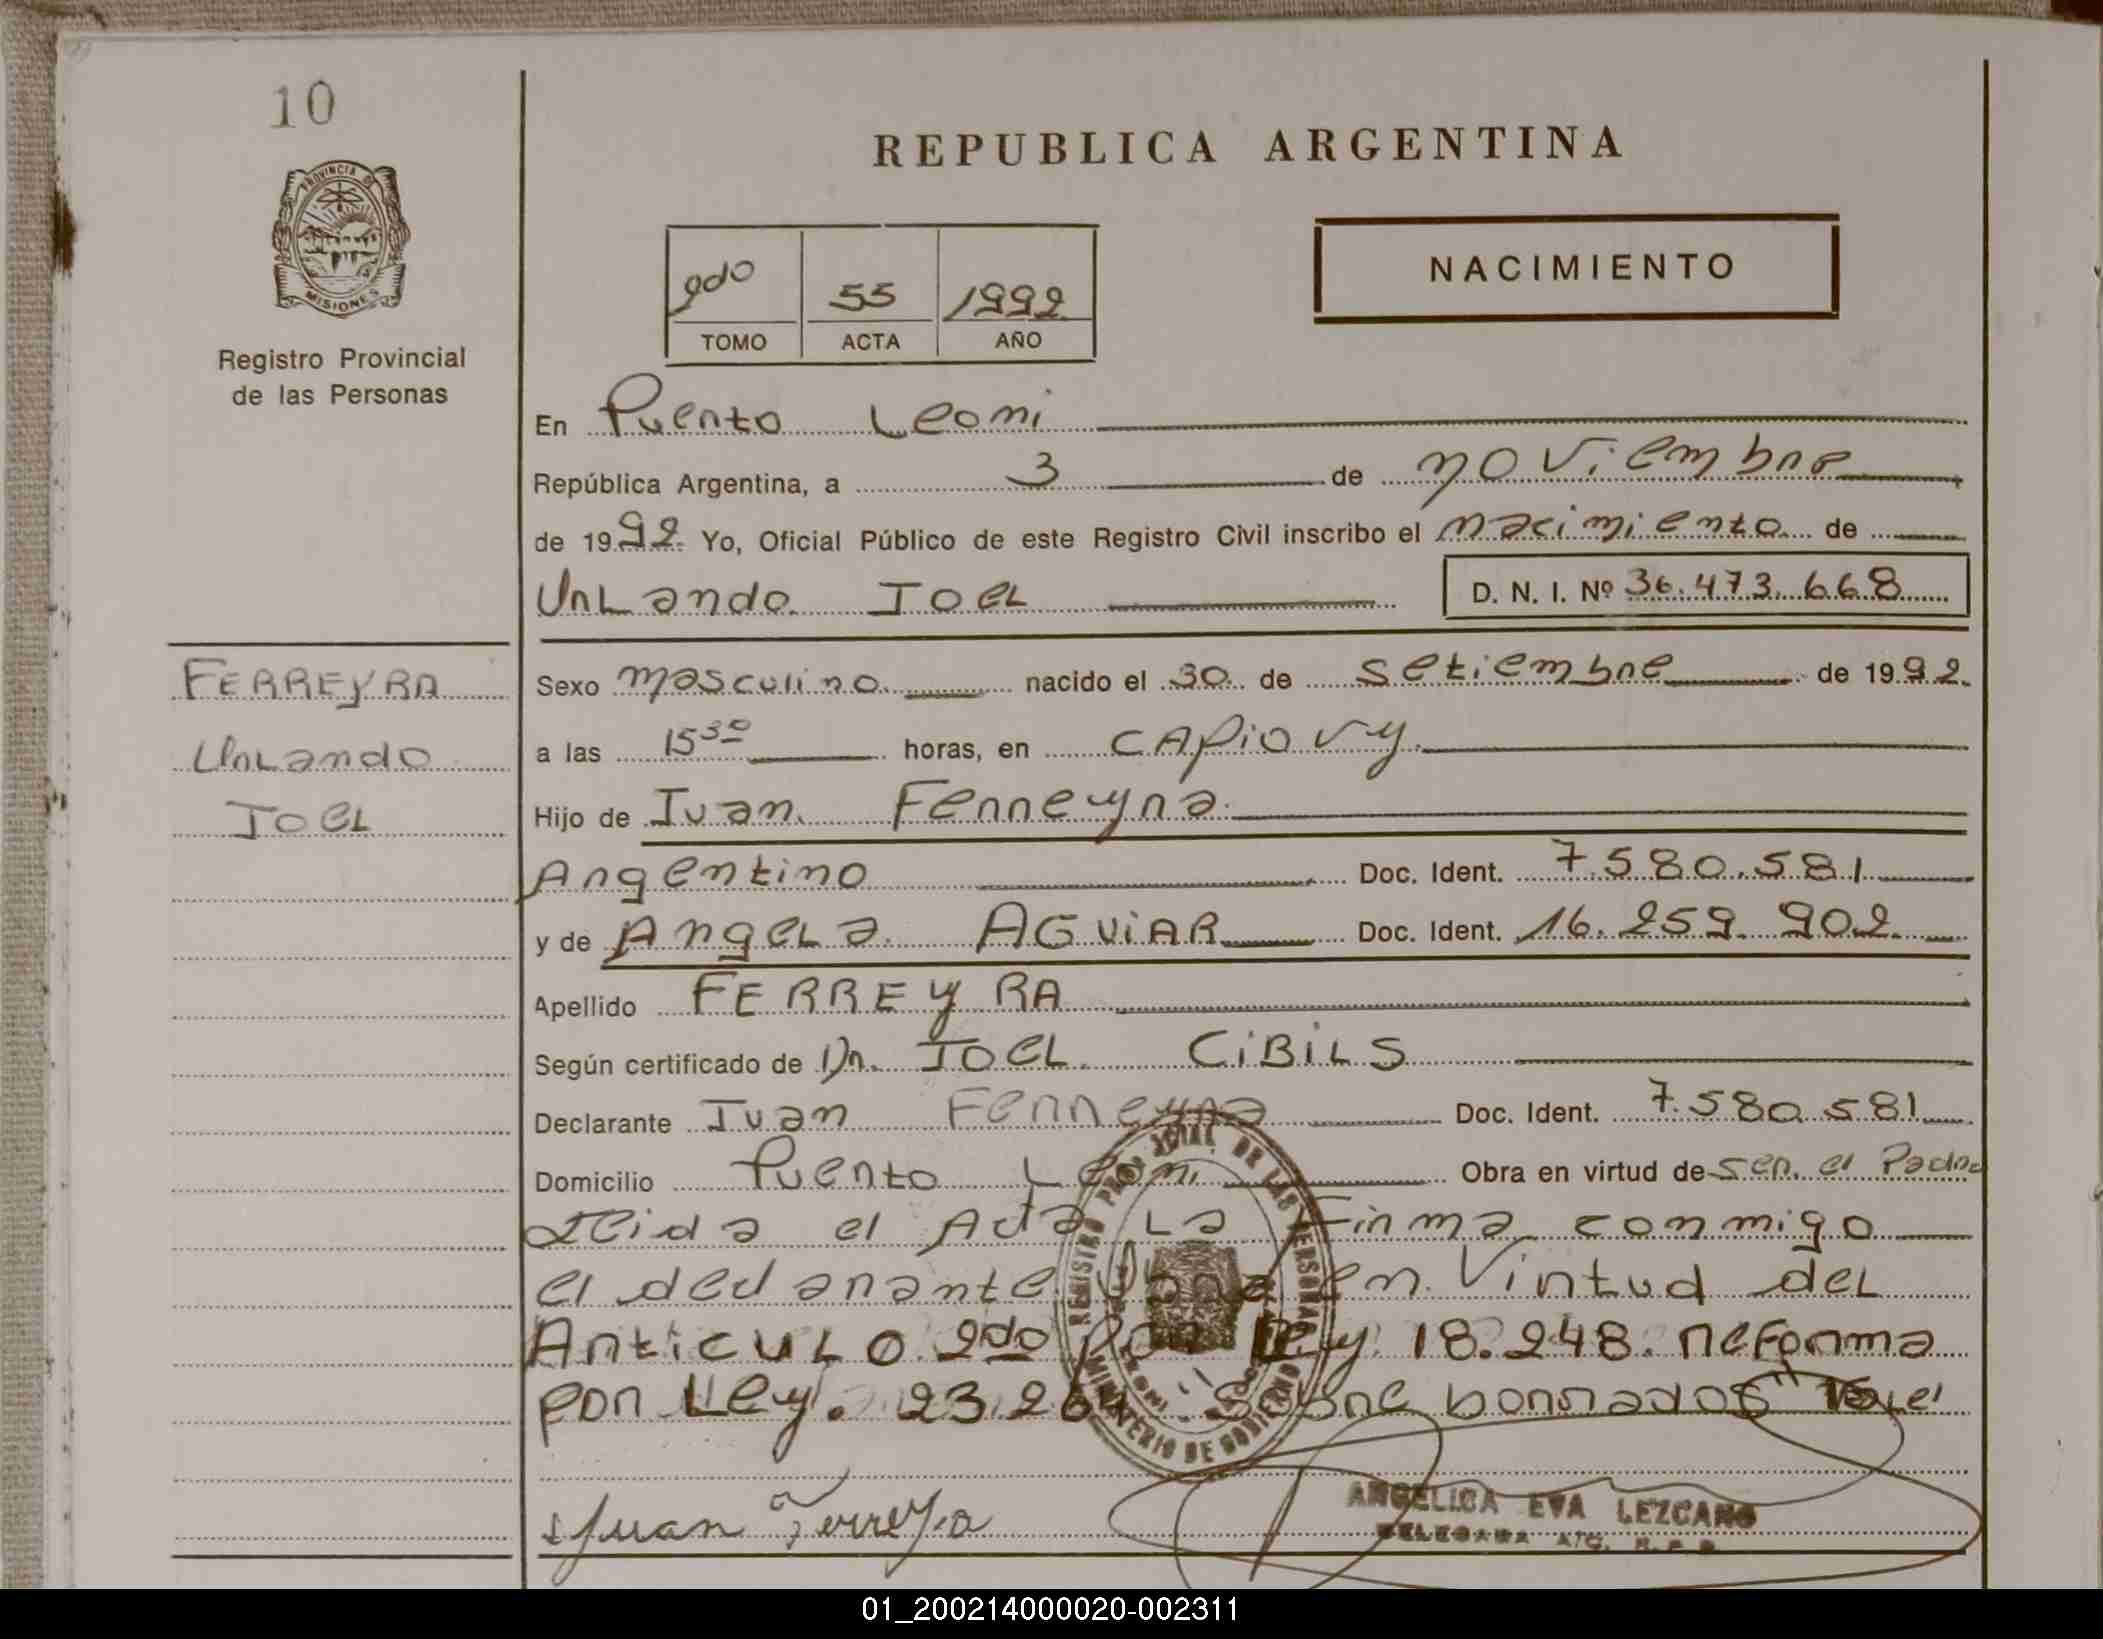 10
REPUBLICA ARGENTINA
PROVINCIA DE
MISIONES
Registro Provincial
de las Personas
2do 55 1992
TOMO ACTA AÑO
NACIMIENTO
En Puerto Leoni
República Argentina, a 3 de noviembre
de 1992 Yo, Oficial Público de este Registro Civil inscribo el nacimiento de
Urlando Joel D. N. I. Nº 36.473.668
FERREYRA
Urlando
Joel
Sexo masculino nacido el 30 de setiembre de 1992
a las 15 30 horas, en CApiovy
Hijo de Juan Ferreyra
Argentino Doc. Ident. 7.580.581
y de Angela AGUiAR Doc. Ident. 16.259.902
Apellido FERREYRA
Según certificado de Dr. Joel CiBiLS
Declarante Juan Ferreyra Doc. Ident. 7.580.581
Domicilio Puerto Leoni Obra en virtud de ser el Padre
Leida el Acta La Firma conmigo
el declarante en Virtud del
Articulo 2do por Ley 18.248. reforma
por Ley. 23.264 Sobre borrados Vale
REGISTRO PROVINCIAL DE LAS PERSONAS
MINISTERIO DE GOBIERNO
Juan Ferreyra
ANGELICA EVA LEZCANO
DELEGADA A/C. R. P. P.
01_200214000020-002311